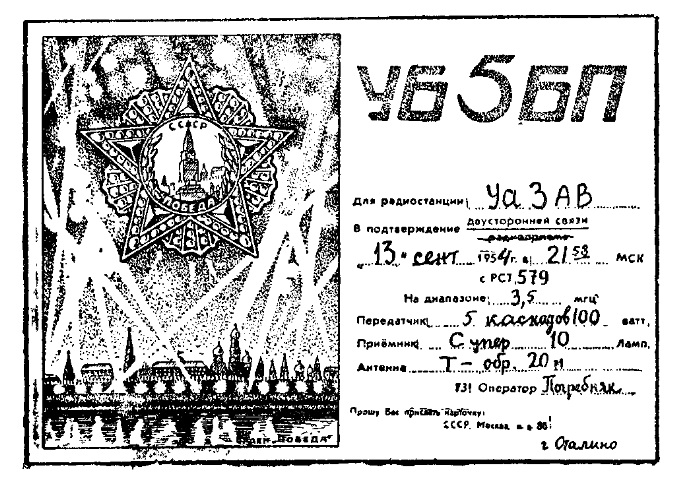 СССР
ПОБЕДА
ОРДЕН „ПОБЕДА"
УБ5БП
Для радиостанции Уа 3 АВ
В подтверждение двусторонней связи
радиоприема
„13" сент 1954 г. в 21 58 МСК
с РСТ 579
На диапазоне 3,5 мгц
Передатчик 5 каскадов 100 ватт,
Приёмник Супер 10 ламп,
Антенна Т - обр. 20 м
73! Оператор Погребняк
Прошу Вас прислать карточку:
СССР, Москва, п. я. 88!
г Сталино